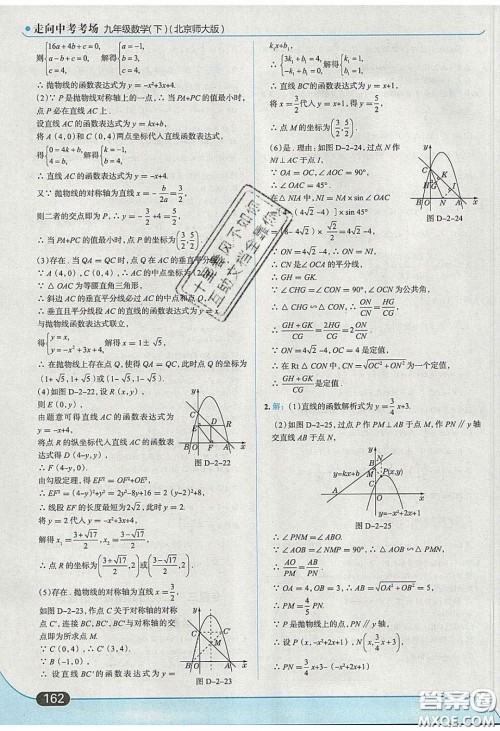 走向中考考场 九年级数学(下)(北京师大版)
则{16a+4b+c=0, a-b+c=0, c=4, 解得{a=-1, b=3, c=4.
∴ 抛物线的函数表达式为 y=-x²+3x+4.
(2)∵ P是抛物线对称轴上的一点,∴ 当PA+PC的值最小时,
点P在直线AC上.
设直线AC的函数表达式为y=kx+b,
将A(4,0)和C(0,4)两点坐标代入直线函数表达式,
得{0=4k+b, 4=b, 解得{k=-1, b=4,
∴ 直线AC的函数表达式为y=-x+4.
又∵ 抛物线的对称轴为直线x=-b/2a=3/2,
则二者的交点即为P,∴ P(3/2,5/2).
∴ 当PA+PC的值最小时,点P的坐标为(3/2,5/2).
(3)存在.当QA=QC时,点Q在AC的垂直平分
∵ A(4,0),C(0,4),∴ OA=OC.
∵ △OAC为等腰直角三角形,
∴ 斜边AC的垂直平分线必过AC的中点和点O.
∴ 垂直且平分线段AC的直线的函数表达式为
与抛物线函数表达式联立,
得{y=x, y=-x²+3x+4, 解得x=1±√5,
∴ 在抛物线上存在点Q,使得QA=QC,此时点Q的坐标为
(1+√5,1+√5)或(1-√5,1-√5).
(4)存在.如图D-2-22,设R(x,y),
则E(0,y),
由题意可得直线AC的函数表达式为
y=-x+4,
将点R的纵坐标代入直线AC的函数表达
式,得D(4-y,y),
∴ F(4-y,0).
由勾股定理,得EF²=OF²+OE²,
∴ EF²=(4-y)²+y²=2y²-8y+16=2(y-2)²+8,
∴ 线段EF的长度最短为2√2,此时y=2.
将y=2代入y=-x²+3x+4,
解得x₁=(3+√17)/2,x₂=(3-√17)/2,
∴ 点R的坐标为((3+√17)/2,2)或((3-√17)/2,2).
图 D-2-22
(5)存在.抛物线的对称轴为直线x=3/2,
如图D-2-23,作点C关于对称轴的对称
点C′,连接BC′,BC′与对称轴的交
点即为所求点M.
∵ C(0,4),∴ C′(3,4),
∵ B(-1,0),
∴ 设直线BC′的函数表达式为y=
图 D-2-23
k₁x+b₁,
∴ {3k₁+b₁=4, -k₁+b₁=0, 解得{k₁=1, b₁=1.
∴ 直线BC′的函数表达式为y=x+1,
将x=3/2代入y=x+1,得y=5/2,
∴ 点M的坐标为(3/2,5/2).
(6)是.理由:如图D-2-24,过点N作
NI⊥AC于点I,
∵ OA=OC,∠AOC=90°,
∴ ∠OAC=45°.
在△NIA中,NI=NA×sin∠OAC
图 D-2-24
∴ OC是∠ACN的平分线,
∵ ∠GHC=∠NOC=90°,∠GCH=∠OCN为公共角,
∴ △CHG∽△CON,∴ ON/CN=HG/CG,
∴ (GH+GK)/CG=2HG/CG=2ON/CN,
∵ ON=4√2-4,OC=4是定值,
∴ 在Rt△CON中,CN=√(OC²+ON²)为一个定值,
∴ (GH+GK)/CG是定值.
2.解:(1)直线的函数解析式为y=3/4x+3.
(2)如图D-2-25,过点P作PM⊥AB于点M,作PN∥y轴
交直线AB于点N.
y=kx+b
P(x,y)
y=-x²+2x+1
图 D-2-25
∴ ∠PNM=∠ABO.
∵ ∠AOB=∠NMP=90°,∴ △AOB∽△PMN,
∴ AO/PM=AB/PN.
∵ OA=4,OB=3,∴ AB=√(OA²+OB²)=5,
∴ PM=4/5PN.
∵ P是抛物线上的点,PN∥y轴,
∴ 设P(x,-x²+2x+1),N(x,3/4x+3),
∴ PN=3/4x+3-(-x²+2x+1)
162
答案圈
MXQE.COM